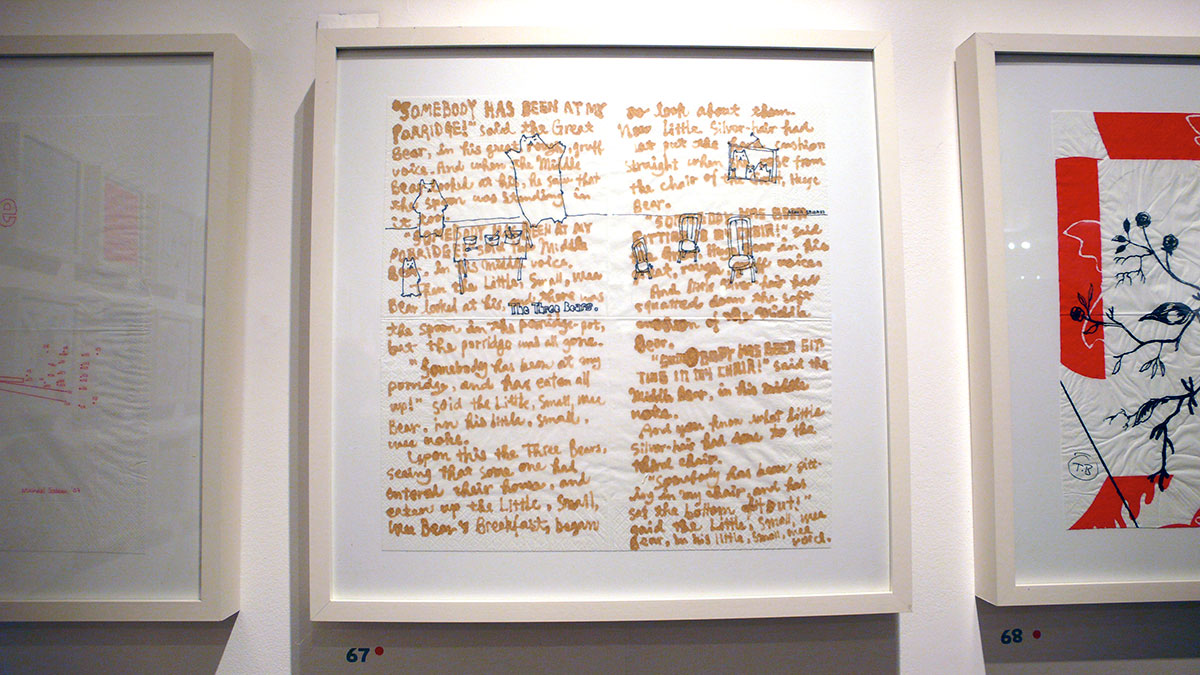 "SOMEBODY HAS BEEN AT MY
PORRIDGE!" said the Great
Bear, in his great rough, gruff
voice. And when the Middle
Bear looked at his, he saw that
the spoon was standing in
it too.
"SOMEBODY HAS BEEN AT MY
PORRIDGE!" said the Middle
Bear, in his middle voice.
Then the Little, Small, Wee
Bear looked at his, and there was
the spoon in the porridge-pot,
but the porridge was all gone.
"Somebody has been at my
porridge, and has eaten all
up!" said the Little, Small, Wee
Bear, in his little, small,
wee voice.
Upon this the Three Bears,
seeing that some one had
entered their house, and
eaten up the Little, Small,
Wee Bear's Breakfast, began
The Three Bears.
to look about them.
Now little Silver-hair had
not put the cushion
straight when from
the chair of the Huge
Bear.
"SOMEBODY HAS BEEN
SITTING IN MY CHAIR!" said
the Great Huge Bear in his
great, rough, gruff voice.
And little Silver-hair had
squatted down the soft
cushion of the Middle
Bear.
"SOMEBODY HAS BEEN SIT-
TING IN MY CHAIR!" said the
Middle Bear, in his middle
voice.
And you know what little
Silver-hair had done to the
third chair.
"Somebody has been sitt-
ing in my chair, and has
sat the bottom of it out!"
said the Little, Small, Wee
Bear, in his little, small, wee
voice.
67
T.B
68